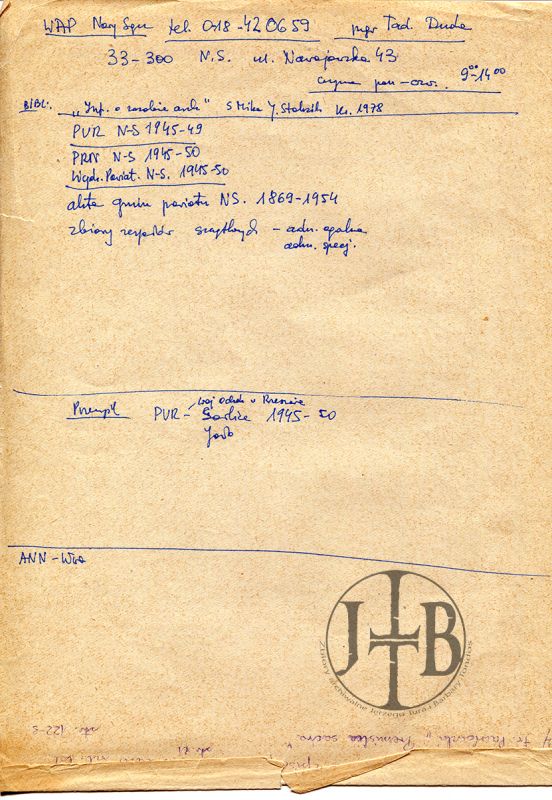 WAP Nowy Sącz tel. 0-18-42 06 59 mgr Tad. Duda
33-300 N.S. ul. Nawojowska 43
czynne pon - czw. 9⁰⁰-14⁰⁰
BIBL: „Inf. o zasobie arch" S Mika J. Stolarzik Kr. 1978
PUR N-S 1945-49
PRN N-S 1945-50
Wydz. Powiat. N-S. 1945-50
akta gmin powiatu NS. 1869-1954
zbiory zespołów szczątkowych - adm. ogólna
adm. specj.
Przemyśl PUR - woj Oddz w Rzeszowie
Gorlice 1945-50
Jasło
ANN - Wwa
JTB
Zbiory archiwalne Jerzego Tura i Barbary Tondos
str. 122-5
„Premislia sacra"